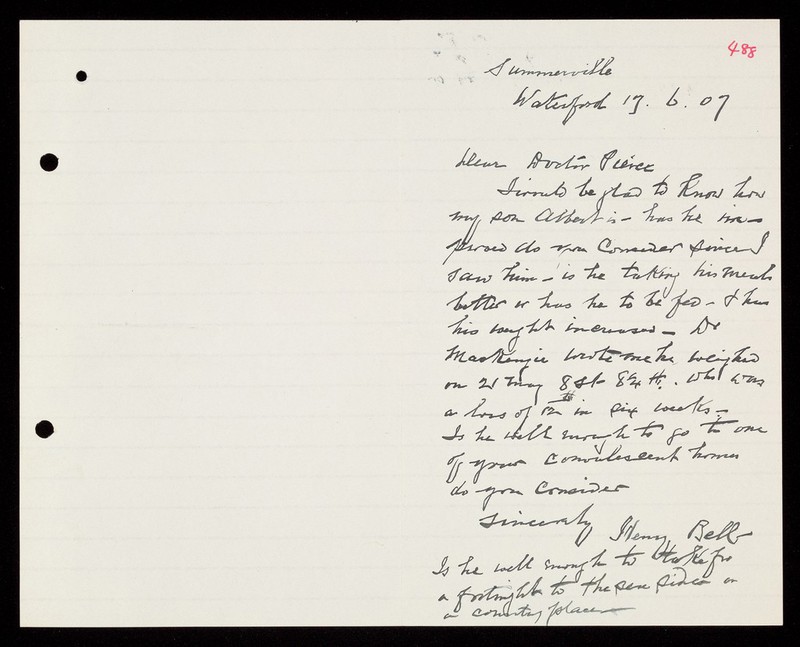 488
Summerville
Waterford 17. 6. 07
Dear Doctor Pierce
I would be glad to know how
my son Albert is - has he im-
proved do you Consider since I
saw him - is he taking his meals
better or has he to be fed - & has
his weight increased - Dr
MacKenzie wrote me he weighed
on 21 May 8 st 8¼ lb. Wh was
a loss of 12 lb in six weeks -
Is he well enough to go to one
of your convalescent homes
do you Consider
Sincerely Henry Bell
Is he well enough to
a fortnight to the sea side or
a country place